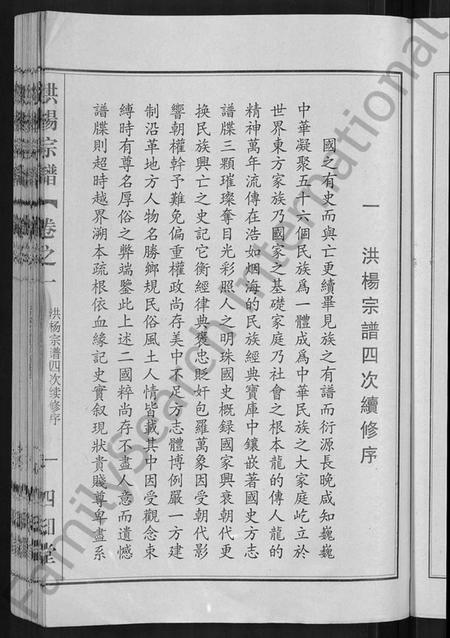 一 洪楊宗譜四次續修序
國之有史而與亡更續畢見族之有譜而衍源長晚咸知巍巍
中華凝聚五十六個民族爲一體成爲中華民族之大家庭屹立於
世界東方家族乃國家之基礎家庭乃社會之根本龍的傳人龍的
精神萬年流傳在浩如烟海的民族經典寶庫中鑲嵌著國史方志
譜牒三顆璀璨奪目光彩照人之明珠國史概録國家興衰朝代更
换民族興亡之史記它衡經律典褒忠貶奸包羅萬象因受朝代影
響朝權幹予難免偏重權政尚存美中不足方志體博例嚴一方建
制沿革地方人物名勝鄉規民俗風土人情皆載其中因受觀念束
縛時有尊名厚俗之弊端鑒此上述二國粹尚存不盡人意而遺憾
譜牒則超時越界溯本疏根依血緣記史實叙現狀貴賤尊卑盡系
洪楊宗譜
卷之一
洪杨宗谱四次续修序
一
四知堂
FamilySearch International